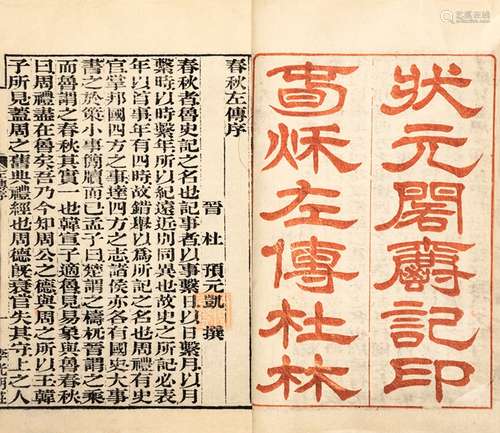 狀元閣爵記印
旾秋左傳杜林
春秋左傳序
晉 杜 預元凱 撰
春秋者魯史記之名也記事者以事繫日以日繫月以月
繫時以時繫年所以紀遠近別同異也故史之所記必表
年以首事年有四時故錯舉以爲所記之名也周禮有史
官掌邦國四方之事達四方之志諸侯亦各有國史大事
書之於策小事簡牘而已孟子曰楚謂之檮杌晉謂之乘
而魯謂之春秋其實一也韓宣子適魯見易象與魯春秋
曰周禮盡在魯矣吾乃今知周公之德與周之所以王韓
子所見蓋周之舊典禮經也周德旣衰官失其守上之人
李光明莊